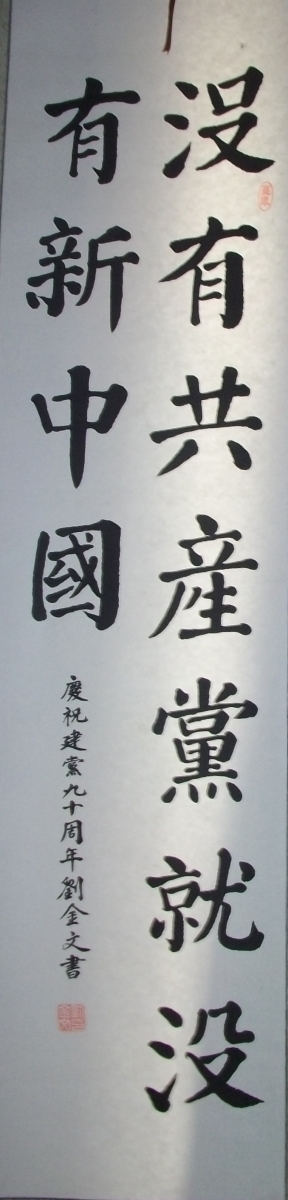 没有共産黨就没
有新中國
慶祝建黨九十周年劉金文書